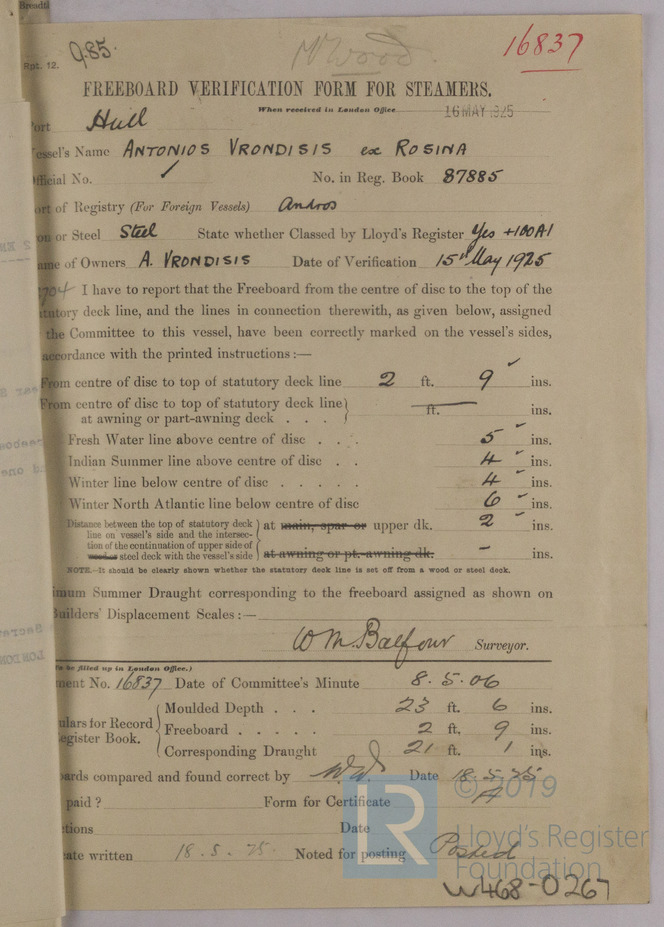 Breadth
Rpt. 12.
985.
W Wood.
16837
FREEBOARD VERIFICATION FORM FOR STEAMERS.
When received in London Office 16 MAY 1925
ort Hull
essel's Name ANTONIOS VRONDISIS ex ROSINA
fficial No. ✓ No. in Reg. Book 87885
ort of Registry (For Foreign Vessels) Andros
on or Steel Steel State whether Classed by Lloyd's Register Yes +100A1
ame of Owners A. VRONDISIS Date of Verification 15th May 1925
704 I have to report that the Freeboard from the centre of disc to the top of the
tatutory deck line, and the lines in connection therewith, as given below, assigned
the Committee to this vessel, have been correctly marked on the vessel's sides,
accordance with the printed instructions:—
From centre of disc to top of statutory deck line 2 ft. 9 ins.
From centre of disc to top of statutory deck line
at awning or part-awning deck . . . ft. ins.
Fresh Water line above centre of disc . . . 5 ins.
Indian Summer line above centre of disc . . 4 ins.
Winter line below centre of disc . . . . . 4 ins.
Winter North Atlantic line below centre of disc 6 ins.
Distance between the top of statutory deck
line on vessel's side and the intersec-
tion of the continuation of upper side of
wood or steel deck with the vessel's side
at main, spar or upper dk. 2 ins.
at awning or pt.-awning dk. – ins.
NOTE.—It should be clearly shown whether the statutory deck line is set off from a wood or steel deck.
imum Summer Draught corresponding to the freeboard assigned as shown on
Builders' Displacement Scales:—
W M. Balfour Surveyor.
o be filled up in London Office.)
ment No. 16837 Date of Committee's Minute 8.5.06
ulars for Record
egister Book.
Moulded Depth . . . 23 ft. 6 ins.
Freeboard . . . . . 2 ft. 9 ins.
Corresponding Draught 21 ft. 1 ins.
ards compared and found correct by W.W. Date 18.5.25
paid? Form for Certificate A
tions Date
ate written 18.5.25. Noted for posting Posted
LR
© 2019
Lloyd's Register
Foundation
W468-0267